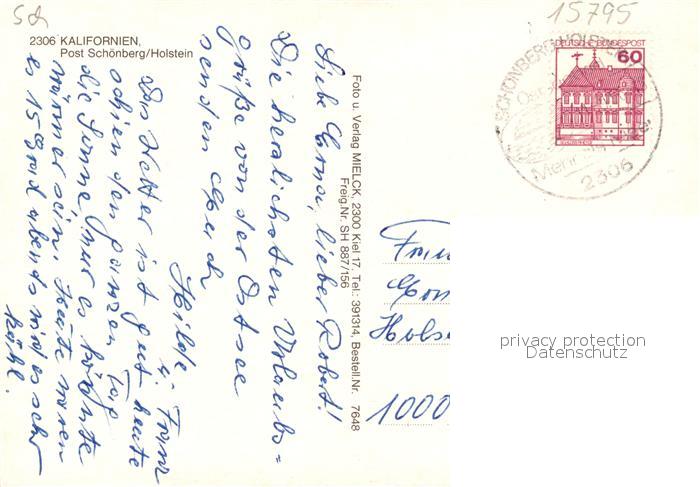 Sch
15795
2306 KALIFORNIEN,
Post Schönberg/Holstein
DEUTSCHE BUNDESPOST
60
SCHÖNBERG, HOLST
2306
Foto u. Verlag MIELCK, 2300 Kiel 17. Tel.: 391314, Bestell.Nr. 7648
Freig.Nr. SH 887/156
Liebe Erna, lieber Robert!
Die herzlichsten Urlaubs=
grüße von der Ostsee
senden Euch
Hilde u. Franz
Das Wetter ist gut heute
schien den ganzen Tag
die Sonne nur es könnte
wärmer sein. Heute waren
es 15 Grad abends wird es sehr
kühl.
1000
privacy protection
Datenschutz